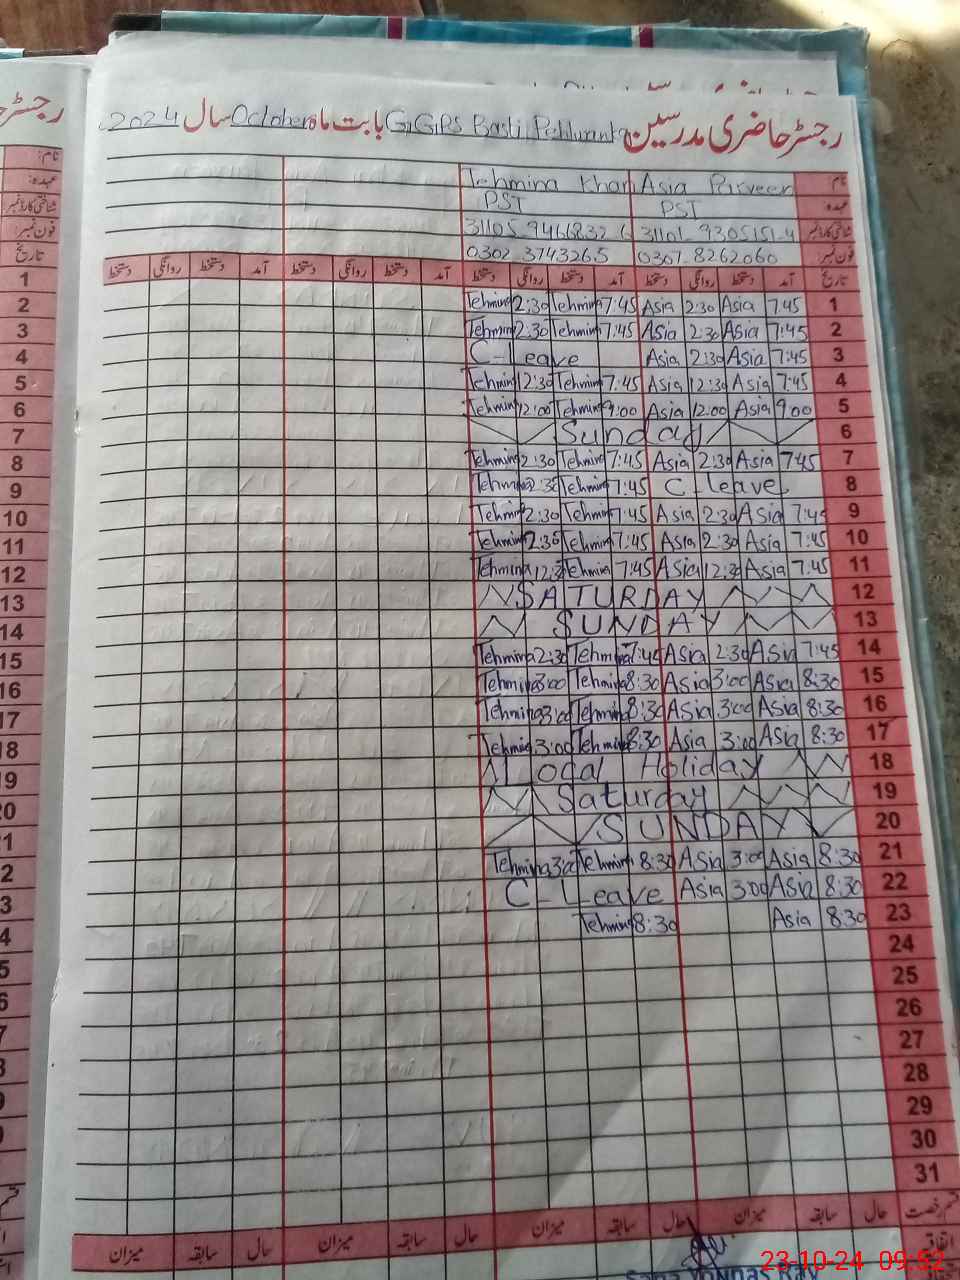 رجسٹر حاضری مدرسین GGPS Basti Pehlwan بابت ماہ October سال 2024
نام: Asia Parveen Tehmina Khan
عہدہ PST PST
شناختی کارڈ نمبر 31101-9305151-4 31105 9466832 6
فون نمبر 0307-8262060 0302 3743265
تاریخ آمد دستخط روانگی دستخط آمد دستخط روانگی دستخط آمد دستخط روانگی دستخط آمد دستخط روانگی دستخط
1 7:45 Asia 2:30 Asia 7:45 Tehmina 2:30 Tehmina
2 7:45 Asia 2:30 Asia 7:45 Tehmina 2:30 Tehmina
3 7:45 Asia 2:30 Asia C-Leave
4 7:45 Asia 12:30 Asia 7:45 Tehmina 12:30 Tehmina
5 9:00 Asia 12:00 Asia 9:00 Tehmina 12:00 Tehmina
6 Sunday
7 7:45 Asia 2:30 Asia 7:45 Tehmina 2:30 Tehmina
8 C-leave 7:45 Tehmina 2:30 Tehmina
9 7:45 Asia 2:30 Asia 7:45 Tehmina 2:30 Tehmina
10 7:45 Asia 2:30 Asia 7:45 Tehmina 2:30 Tehmina
11 7:45 Asia 12:30 Asia 7:45 Tehmina Tehmina
12 SATURDAY
13 SUNDAY
14 7:45 Asia 2:30 Asia 7:45 Tehmina 2:30 Tehmina
15 8:30 Asia 3:00 Asia 8:30 Tehmina 3:00 Tehmina
16 8:30 Asia 3:00 Asia 8:30 Tehmina 3:00 Tehmina
17 8:30 Asia 3:00 Asia 8:30 Tehmina 3:00 Tehmina
18 Local Holiday
19 Saturday
20 SUNDAY
21 8:30 Asia 3:00 Asia 8:30 Tehmina 3:00 Tehmina
22 8:30 Asia 3:00 Asia C-Leave
23 8:30 Asia 8:30 Tehmina
24
25
26
27
28
29
30
31
قسم رخصت حال سابقہ میزان حال سابقہ میزان حال سابقہ میزان حال سابقہ میزان
اتفاقیہ
23-10-24 09:52